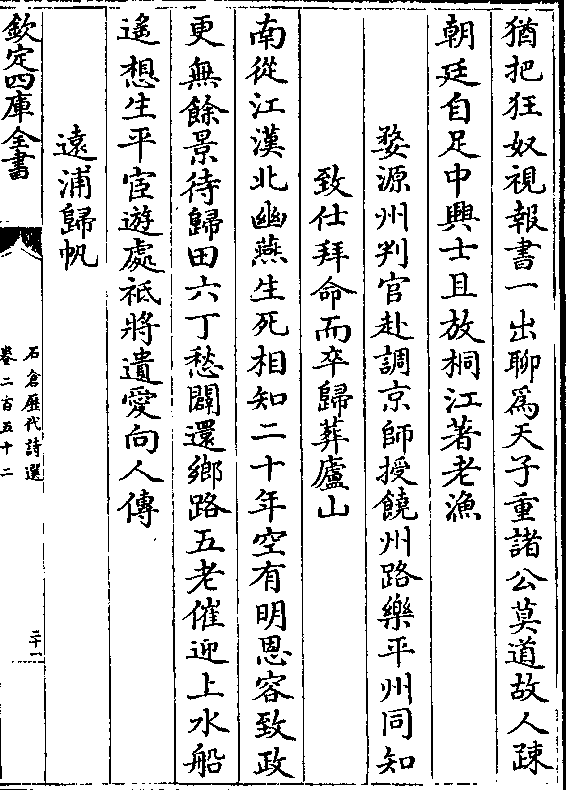 猶把狂奴視報書一出聊為天子重諸公莫道故人踈
朝廷自足中興士且放桐江著老漁
婺源州判官赴調京師授饒州路樂平州同知
致仕拜命而卒歸葬廬山
南從江漢北幽燕生死相知二十年空有明恩容致政
更無餘景待歸田六丁愁闢還鄉路五老催迎上水船
遙想生平宦遊處祗將遺愛向人傳
遠浦歸帆
欽定四庫全書
石倉歷代詩選
卷二百五十二
二十一